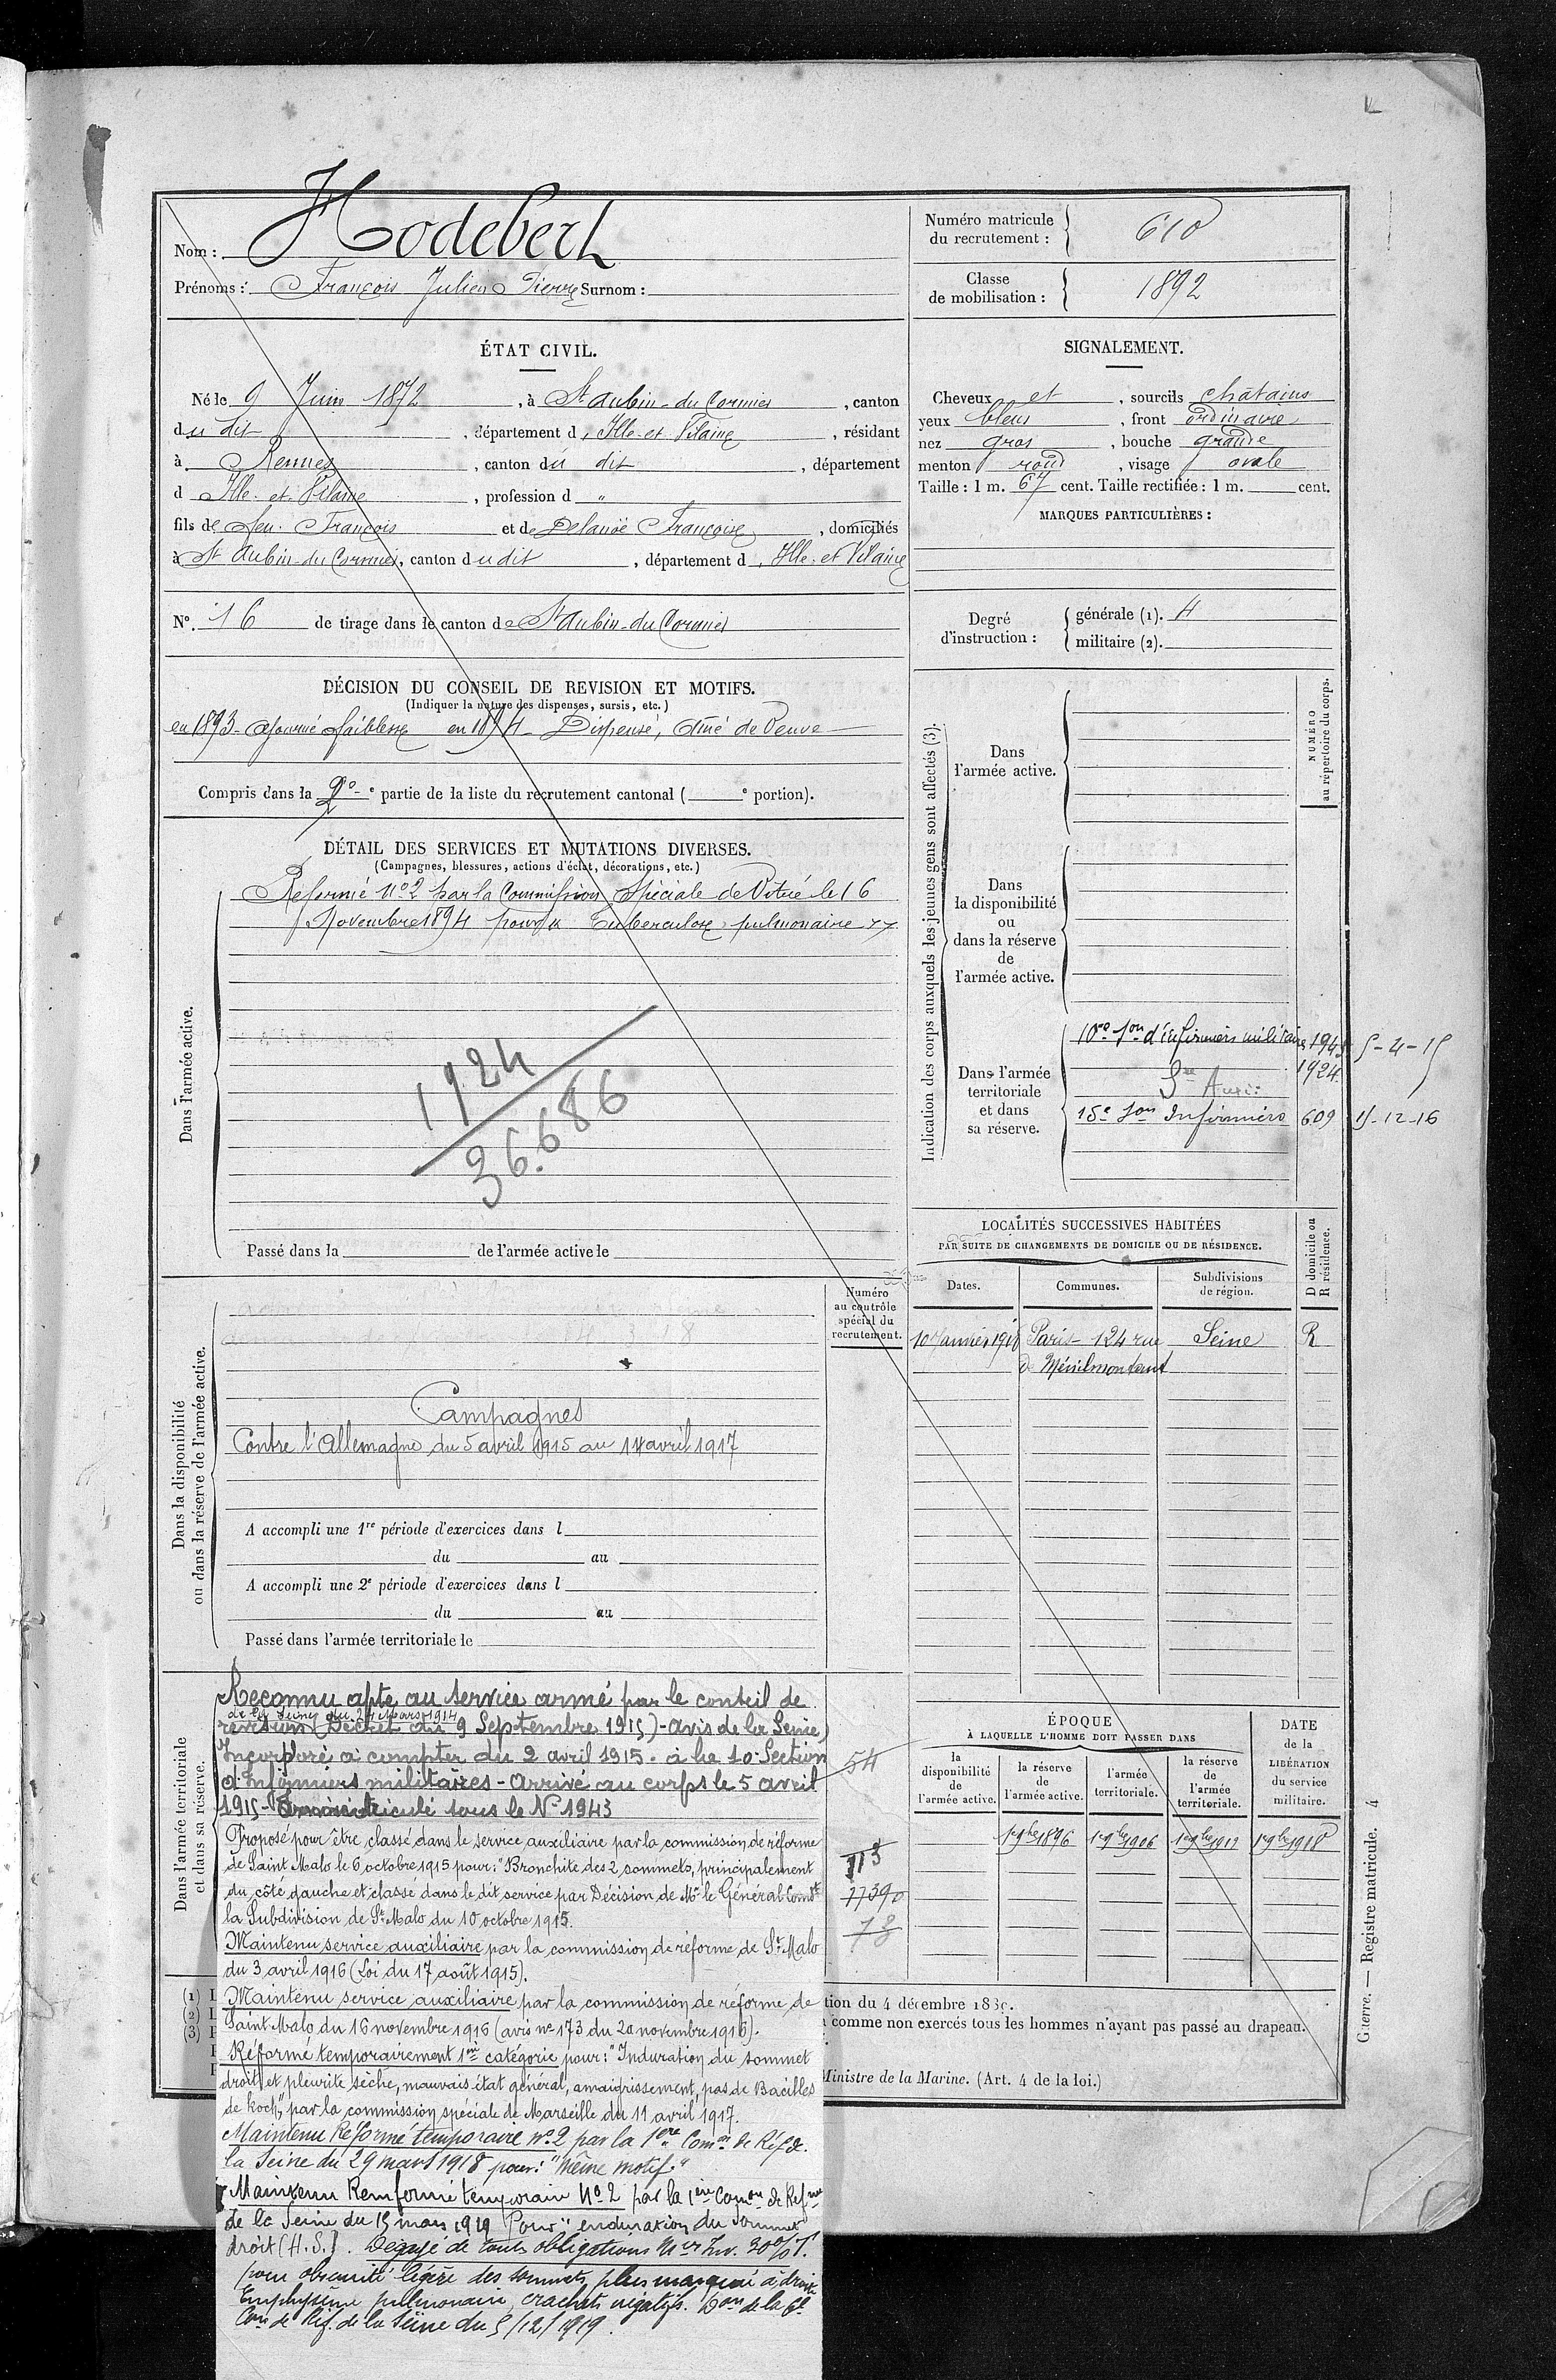 Nom : Hodebert
Prénoms : François Julien Pierre Surnom :
Numéro matricule du recrutement : 610
Classe de mobilisation : 1892
ÉTAT CIVIL.
Né le 9 Juin 1872, à St Aubin-du Cormier, canton
du dit, département d'Ille-et Vilaine, résidant
à Rennes, canton du dit, département
d Ille-et Vilaine, profession d "
fils de feu François et de Delanoë Françoise, domiciliés
à St Aubin-du Cormier, canton dudit, département d'Ille-et Vilaine
N°. 16 de tirage dans le canton de St Aubin-du Cormier
SIGNALEMENT.
Cheveux et, sourcils châtains
yeux bleus, front ordinaire
nez gros, bouche grande
menton rond, visage ovale
Taille : 1 m. 67 cent. Taille rectifiée : 1 m. cent.
MARQUES PARTICULIÈRES :
Degré d'instruction :
générale (1). 4
militaire (2).
DÉCISION DU CONSEIL DE REVISION ET MOTIFS.
(Indiquer la nature des dispenses, sursis, etc.)
en 1893 Ajourné faiblesse en 1894 Dispensé, aîné de Veuve
Compris dans la 2e partie de la liste du recrutement cantonal ( e portion).
DÉTAIL DES SERVICES ET MUTATIONS DIVERSES.
(Campagnes, blessures, actions d'éclat, décorations, etc.)
Dans l'armée active.
Réformé N°2 par la Commission Spéciale de Vitré le 16
Novembre 1894 pour Tuberculose pulmonaire
1924
36.686
Passé dans la de l'armée active le
Indication des corps auxquels les jeunes gens sont affectés (3).
NUMÉRO au répertoire du corps.
Dans
l'armée active.
Dans
la disponibilité
ou
dans la réserve
de
l'armée active.
Dans l'armée
territoriale
et dans
sa réserve.
10e Son d'infirmiers militaires 194 5-4-15
1924
Sce Auxi:
15e Son Infirmiers 609 15-12-16
LOCALITÉS SUCCESSIVES HABITÉES
PAR SUITE DE CHANGEMENTS DE DOMICILE OU DE RÉSIDENCE.
Dates.
Communes.
Subdivisions
de région.
D domicile ou
R résidence.
10 Janvier 1918 Paris - 124 rue Seine R
de Ménilmontant
Dans la disponibilité
ou dans la réserve de l'armée active.
Numéro
au contrôle
spécial du
recrutement.
Campagnes
Contre l'Allemagne du 5 avril 1915 au 14 avril 1917
A accompli une 1re période d'exercices dans l
du au
A accompli une 2e période d'exercices dans l
du au
Passé dans l'armée territoriale le
Dans l'armée territoriale
et dans sa réserve.
Reconnu apte au service armé par le conseil de
de la Seine du 24 Mars 1914
revision (Décret du 9 Septembre 1915) - avis de la Seine)
Incorporé à compter du 2 avril 1915. à la 10e Section 54
d'Infirmiers militaires - Arrivé au corps le 5 avril
1915 - Immatriculé sous le N° 1943
Proposé pour être classé dans le service auxiliaire par la commission de réforme
de Saint Malo le 6 octobre 1915 pour : "Bronchite des 2 sommets, principalement
du côté gauche et classé dans le dit service par Décision de Mr le Général Comdt
la Subdivision de St Malo du 10 octobre 1915.
Maintenu service auxiliaire par la commission de réforme de St Malo
du 3 avril 1916 (Loi du 17 août 1915).
Maintenu service auxiliaire par la commission de réforme de
Saint Malo du 16 novembre 1916 (avis no 173 du 20 novembre 1916).
Réformé temporairement 1re catégorie pour : "Induration du sommet
droit et pleurite sèche, mauvais état général, amaigrissement, pas de Bacilles
de Koch," par la commission spéciale de Marseille du 11 avril 1917.
Maintenu Réformé temporaire no 2 par la 1ère Comon de Réf. de
la Seine du 29 mars 1918 pour : "Même motif."
Maintenu Remformé temporaire No 2 par la 1ère Comon de Refme
de la Seine du 15 mars 1919 Pour "enduration du sommet
droit (H.S.). Dégagé de toutes obligations Mres Inv. 20% T.
pour obscurité légère des sommets plus marquée à droite
Emphysème pulmonaire, crachats négatifs. Don de la 6e
Con de Réf. de la Seine du 5/12/1919.
113
77390
78
ÉPOQUE
À LAQUELLE L'HOMME DOIT PASSER DANS
la
disponibilité
de
l'armée active.
la réserve
de
l'armée active.
l'armée
territoriale.
la réserve
de
l'armée
territoriale.
DATE
de la
LIBÉRATION
du service
militaire.
1er 9bre 1896 1er 9bre 1906 1er 9bre 1912 1er 9bre 1918
(1) I
(2) L
(3) F
tion du 4 décembre 1889.
comme non exercés tous les hommes n'ayant pas passé au drapeau.
Ministre de la Marine. (Art. 4 de la loi.)
Guerre. — Registre matricule. 4